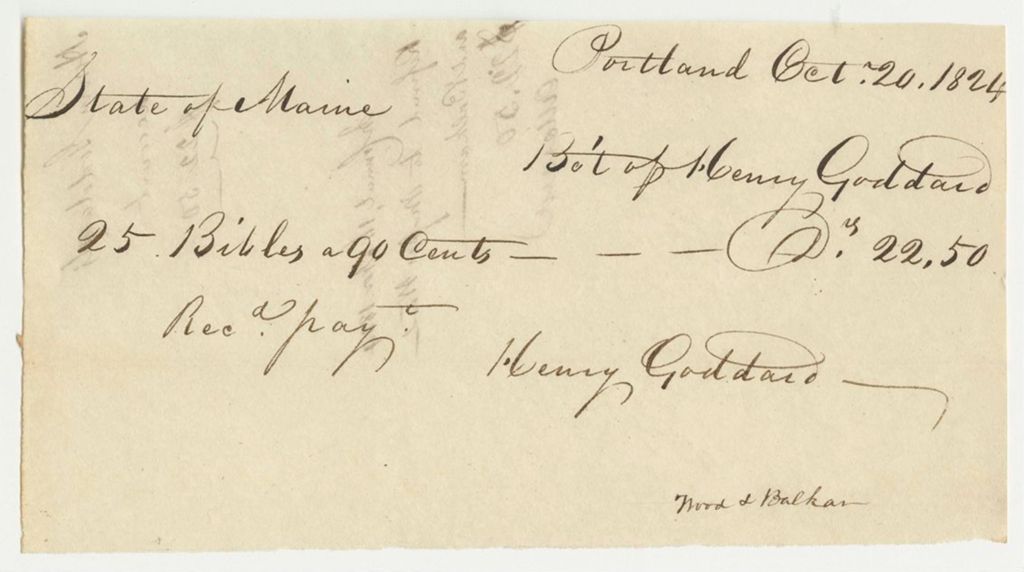 Portland Oct.r 20. 1824
State of Maine
Bo't of Henry Goddard
25 Bibles a 90 Cents — — — D.s 22,50
Rec.d pay.t
Henry Goddard
Wood &